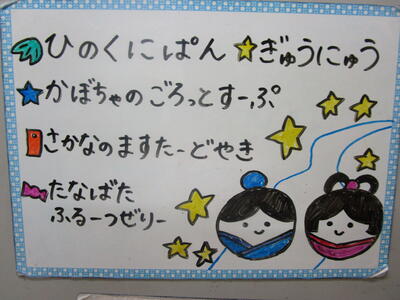 ひのくにぱん ぎゅうにゅう
かぼちゃのごろっとすーぷ
さかなのますたーどやき
たなばた
ふるーつぜりー